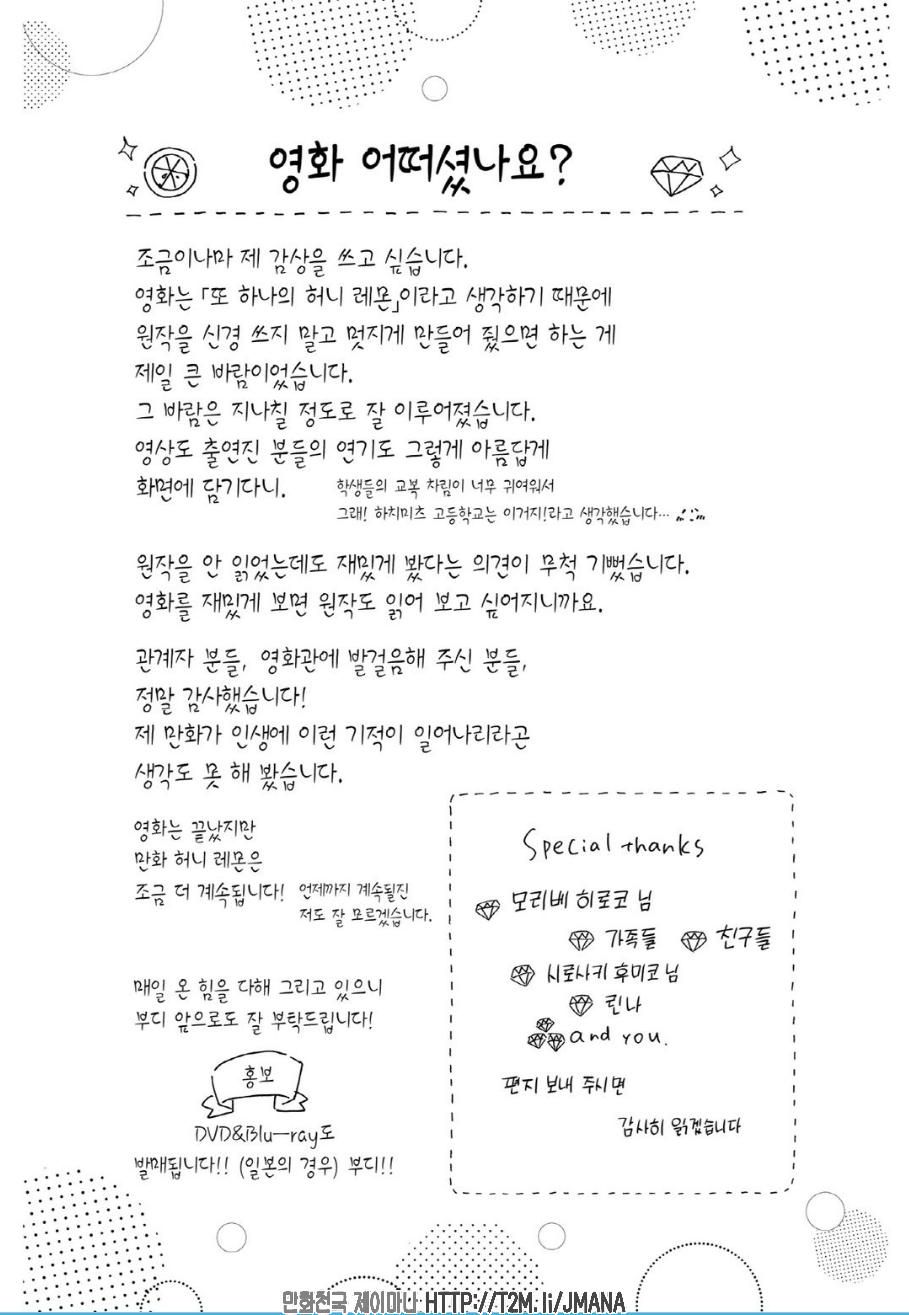 영화 어떠셨나요?
조금이나마 제 감상을 쓰고 싶습니다.
영화는 「또 하나의 허니 레몬」이라고 생각하기 때문에
원작을 신경 쓰지 말고 멋지게 만들어 줬으면 하는 게
제일 큰 바람이었습니다.
그 바람은 지나칠 정도로 잘 이루어졌습니다.
영상도 출연진 분들의 연기도 그렇게 아름답게
화면에 담기다니.
학생들의 교복 차림이 너무 귀여워서
그래! 하치미츠 고등학교는 이거지!라고 생각했습니다…
원작을 안 읽었는데도 재밌게 봤다는 의견이 무척 기뻤습니다.
영화를 재밌게 보면 원작도 읽어 보고 싶어지니까요.
관계자 분들, 영화관에 발걸음해 주신 분들,
정말 감사했습니다!
제 만화가 인생에 이런 기적이 일어나리라곤
생각도 못 해 봤습니다.
영화는 끝났지만
만화 허니 레몬은
조금 더 계속됩니다!
언제까지 계속될진
저도 잘 모르겠습니다.
매일 온 힘을 다해 그리고 있으니
부디 앞으로도 잘 부탁드립니다!
홍보
DVD&Blu-ray도
발매됩니다!! (일본의 경우) 부디!!
Special thanks
모리베 히로코 님
가족들 친구들
시로사키 후미코 님
린나
and you.
편지 보내 주시면
감사히 읽겠습니다
만화천국 제이마나 HTTP://T2M.li/JMANA